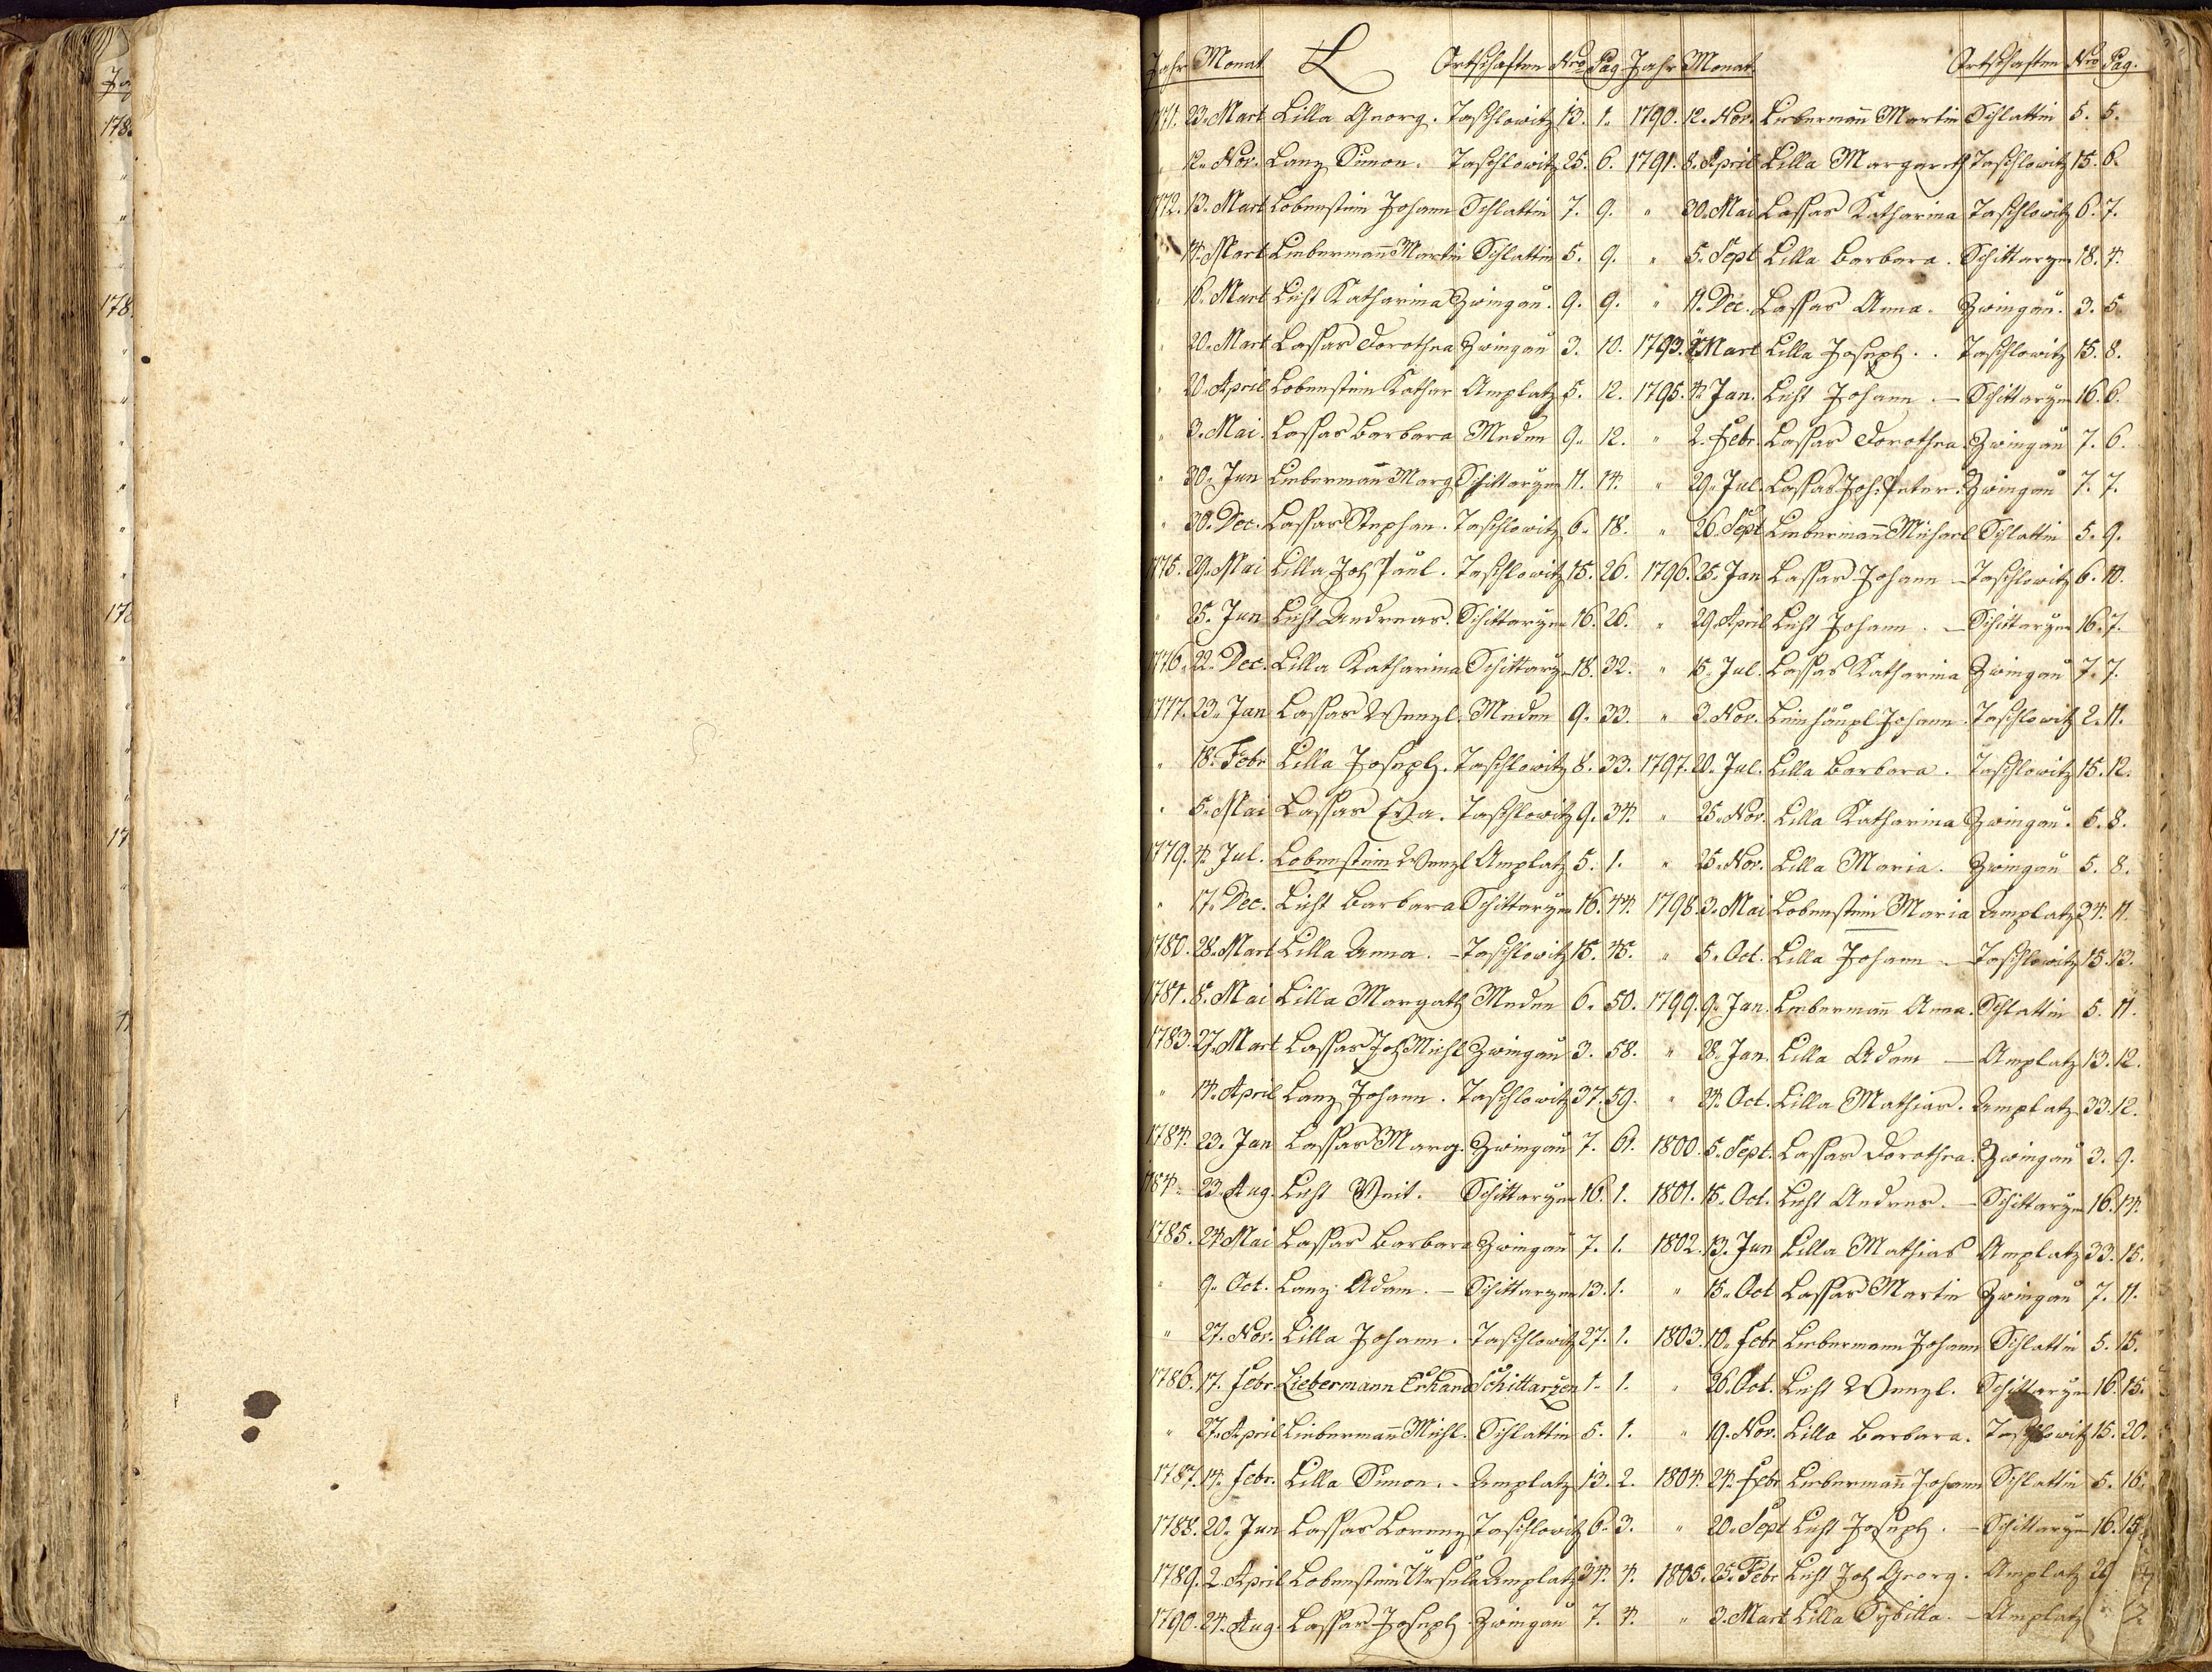 Jahr Monat L Ortschaften Nro Pag.
1771. 23. Mart Lilla Georg. Taschlowitz 13. 1.
" 12. Nov. Lanz Simon. Taschlowitz 25. 6.
1772. 13. Mart Lobenstein Johann Schlattin 7. 9.
" 14. Mart Liebermañ Martin Schlattin 5. 9.
" 16. Mart Licht Katharina Zwingau. 9. 9.
" 20. Mart Lassas Dorothea Zwingau 3. 10.
" 20. April Lobenstein Kathar Amplatz 5. 12.
" 3. Mai. Lassas Barbara Meden 9. 12.
" 30. Jun Liebermañ Marg Schittarzen 11. 14.
" 30. Dec. Lassas Stephan. Taschlowitz 6. 18.
1775. 29. Mai Lilla Joh Paul. Taschlowitz 15. 26.
" 25. Jun Licht Andreas. Schittarzen 16. 26.
1776. 22. Dec. Lilla Katharina Schittarz 18. 32.
1777. 23. Jan Lassas Wenzl. Meden 9. 33.
" 18. Febr Lilla Joseph. Taschlowitz 8. 33.
" 5. Mai Lassas Eva. Taschlowitz 9. 34.
1779. 4. Jul. Lobenstein Wenzl Amplatz 5. 1.
" 17. Dec. Licht Barbara Schittarzen 16. 44.
1780. 28. Mart Lilla Anna. Taschlowitz 15. 45.
1781. 8. Mai Lilla Margath Meden 6. 50.
1783. 27. Mart Lassas Joh Michl Zwingau 3. 58.
" 14. April Lanz Johann. Taschlowitz 37. 59.
1784. 23. Jan Lassas Marg. Zwingau 7. 61.
1784. 23. Aug. Licht Veit. Schittarzen 16. 1.
1785. 24. Mai Lassas Barbara Zwingau 7. 1.
" 9. Oct. Lanz Adam. Schittarzen 13. 1.
" 27. Nov. Lilla Johann. Taschlowitz 27. 1.
1786. 17. Febr. Liebermann Erhard Schittarzen 1. 1.
" 27. April Liebermañ Michl. Schlattin 5. 1.
1787. 14. Febr. Lilla Simon. Amplatz 13. 2.
1788. 20. Jun Lassas Lorenz Taschlowitz 6. 3.
1789. 2. April Lobenstein Ursula Amplatz 34. 4.
1790. 24. Aug. Lassas Joseph Zwingau 7. 4.
Jahr Monat. Ortschaften Nro Pag.
1790. 12. Nov. Liebermañ Martin Schlattin 5. 5.
1791. 8. April Lilla Margareth Taschlowitz 15. 6.
" 30. Mai Lassas Katharina Taschlowitz 6. 7.
" 5. Sept Lilla Barbara. Schittarzen 18. 4.
" 11. Dec. Lassas Anna. Zwingau. 3. 5.
1793. Mart Lilla Joseph. Taschlowitz 15. 8.
1795. 4. Jan. Licht Johann. Schittarzen 16. 6.
" 2. Febr. Lassas Dorothea. Zwingau 7. 6.
" 29. Jul. Lassas Joh. Peter. Zwingau 7. 7.
" 26. Sept Liebermañ Michael Schlattin 5. 9.
1796. 25. Jan Lassas Johann Taschlowitz 6. 10.
" 29. April Licht Johann. Schittarzen 16. 7.
" 15. Jul. Lassas Katharina Zwingau 7. 7.
" 3. Nov. Leinhäupl Johann. Taschlowitz 2. 11.
1797. 20. Jul. Lilla Barbara. Taschlowitz 15. 12.
" 25. Nov. Lilla Katharina Zwingau. 5. 8.
" 25. Nov. Lilla Maria. Zwingau 5. 8.
1798. 3. Mai Lobenstein Maria Amplatz 34. 11.
" 5. Oct. Lilla Johann. Taschlowitz 15. 13.
1799. 9. Jan. Liebermañ Anna. Schlattin 5. 11.
" 28. Jan. Lilla Adam Amplatz 13. 12.
" 24. Oct. Lilla Mathias. Amplatz 33. 12.
1800. 5. Sept. Lassas Dorothea. Zwingau 3. 9.
1801. 15. Oct. Licht Andres. Schittarzen 16. 14.
1802. 13. Jun Lilla Mathias Amplatz 33. 15.
" 15. Oct Lassas Martin Zwingau 7. 11.
1803. 10. Febr Liebermann Johann Schlattin 5. 15.
" 26. Oct. Licht Wenzl. Schittarzen 16. 15.
" 19. Nov. Lilla Barbara. Taschlowitz 15. 20.
1804. 24. Febr Liebermañ Johann Schlattin 5. 16.
" 20. Sept Licht Joseph. Schittarzen 16. 15.
1805. 25. Febr Licht Joh Georg. Amplatz
" 3. Mart Lilla Sybilla. Amplatz